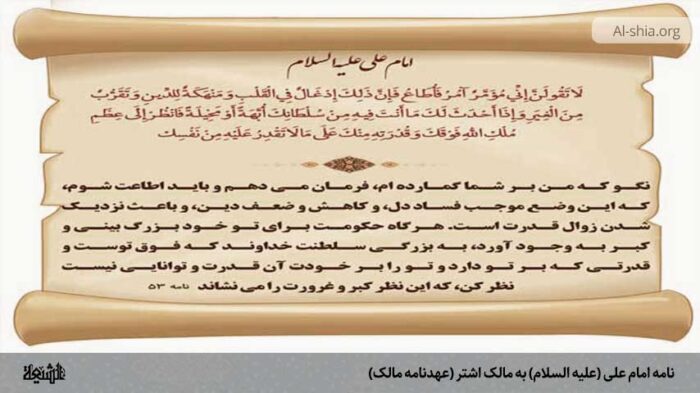 Al-shia.org
امام علی علیه السلام
لَا تَقُولَنَّ إِنِّي مُؤَمَّرٌ آمُرُ فَأُطَاعُ فَإِنَّ ذَلِكَ إِدْغَالٌ فِي الْقَلْبِ وَ مَنْهَكَةٌ لِلدِّينِ وَ تَقَرُّبٌ
مِنَ الْغِيَرِ وَ إِذَا أَحْدَثَ لَكَ مَا أَنْتَ فِيهِ مِنْ سُلْطَانِكَ أُبَّهَةً أَوْ مَخِيلَةً فَانْظُرْ إِلَى عِظَمِ
مُلْكِ اللَّهِ فَوْقَكَ وَ قُدْرَتِهِ مِنْكَ عَلَى مَا لَا تَقْدِرُ عَلَيْهِ مِنْ نَفْسِكَ
نگو که من بر شما گمارده ام، فرمان می دهم و باید اطاعت شوم،
که این وضع موجب فساد دل، و کاهش و ضعف دین، و باعث نزدیک
شدن زوال قدرت است. هرگاه حکومت برای تو خود بزرگ بینی و
کبر به وجود آورد، به بزرگی سلطنت خداوند که فوق توست و
قدرتی که بر تو دارد و تو را بر خودت آن قدرت و توانایی نیست
نظر کن، که این نظر کبر و غرورت را می نشاند نامه ۵۳
نامه امام علی (علیه السلام) به مالک اشتر (عهدنامه مالک)
الشیعة